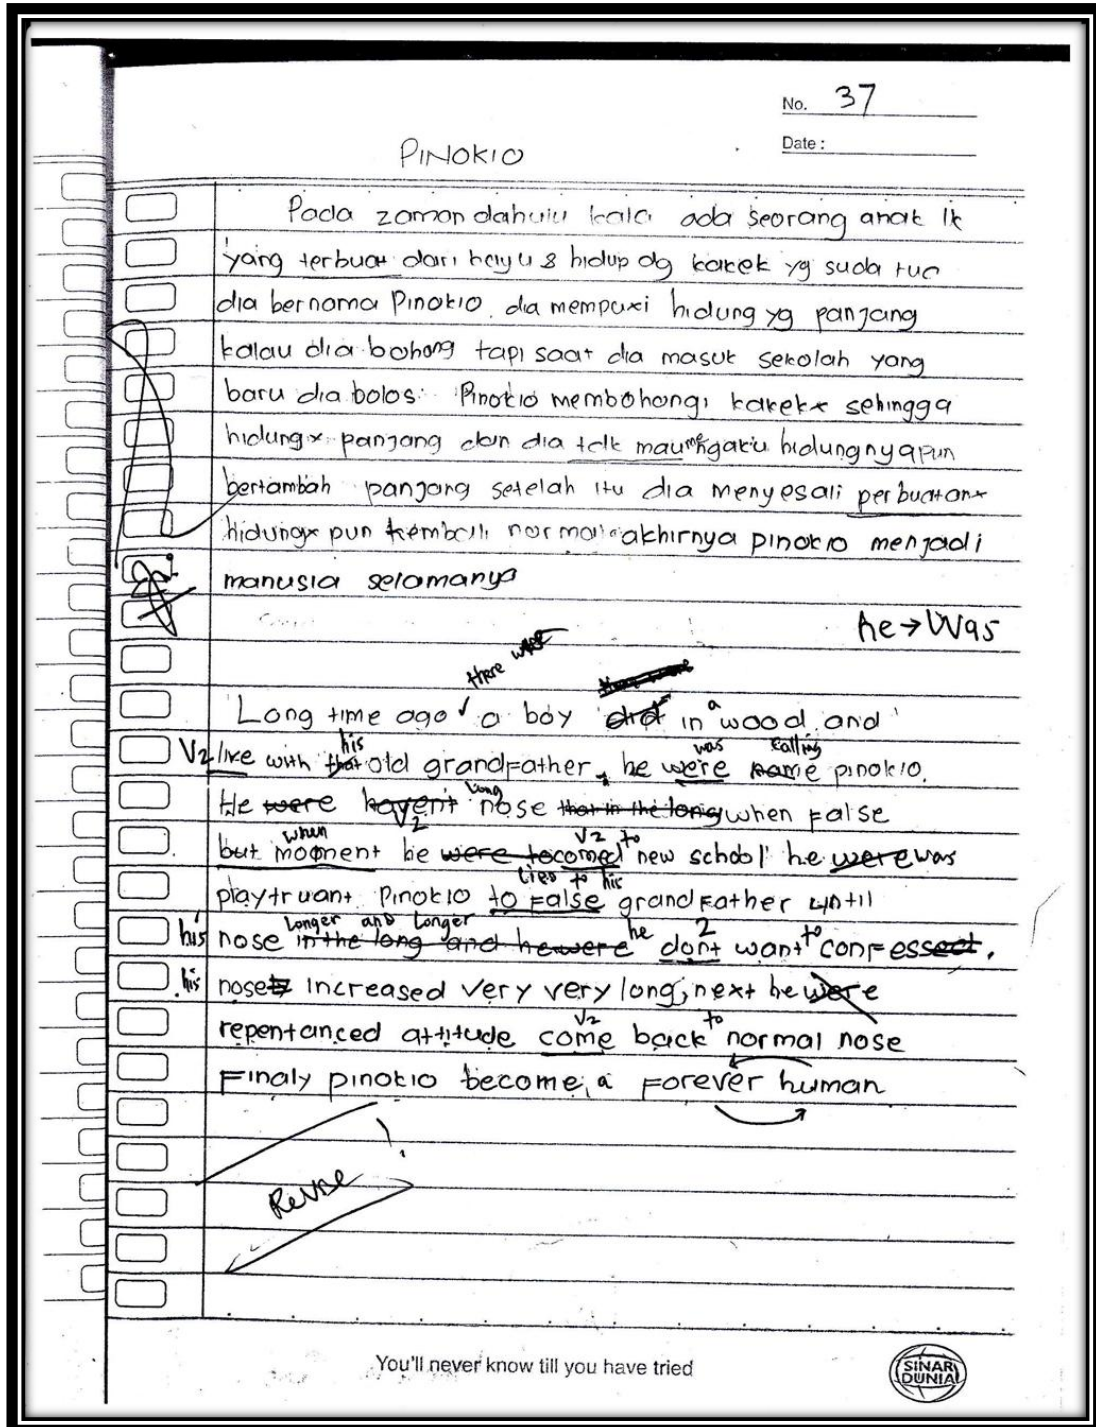 No. 37
Date :
PINOKIO
Pada zaman dahulu kala ada seorang anak lk
yang terbuat dari kayu & hidup dg kakek yg suda tua
dia bernama Pinokio. dia mempuxi hidung yg panjang
kalau dia bohong tapi saat dia masuk sekolah yang
baru dia bolos. Pinokio membohongi kakekx sehingga
hidungx panjang dan dia tdk mau mengaku hidungnyapun
bertambah panjang setelah itu dia menyesali perbuatanx
hidungx pun kembali normal akhirnya pinokio menjadi
manusia selamanya
he → Was
there was
Long time ago a boy did in a wood and
his was calling
V2 live with that old grandfather, he were name pinokio.
long
He were havent nose that in the long when False
V2
when V2 to
but moment he were tocomed new school he were was
lies to his
playtruant Pinokio to False grandFather until
Longer and Longer he 2 to
his nose in the long and he were dont want confessed.
his nose increased very very long, next he were
V2 to
repentanced attitude come back normal nose
Finaly pinokio become a Forever human
Revise
You'll never know till you have tried
SINAR
DUNIA